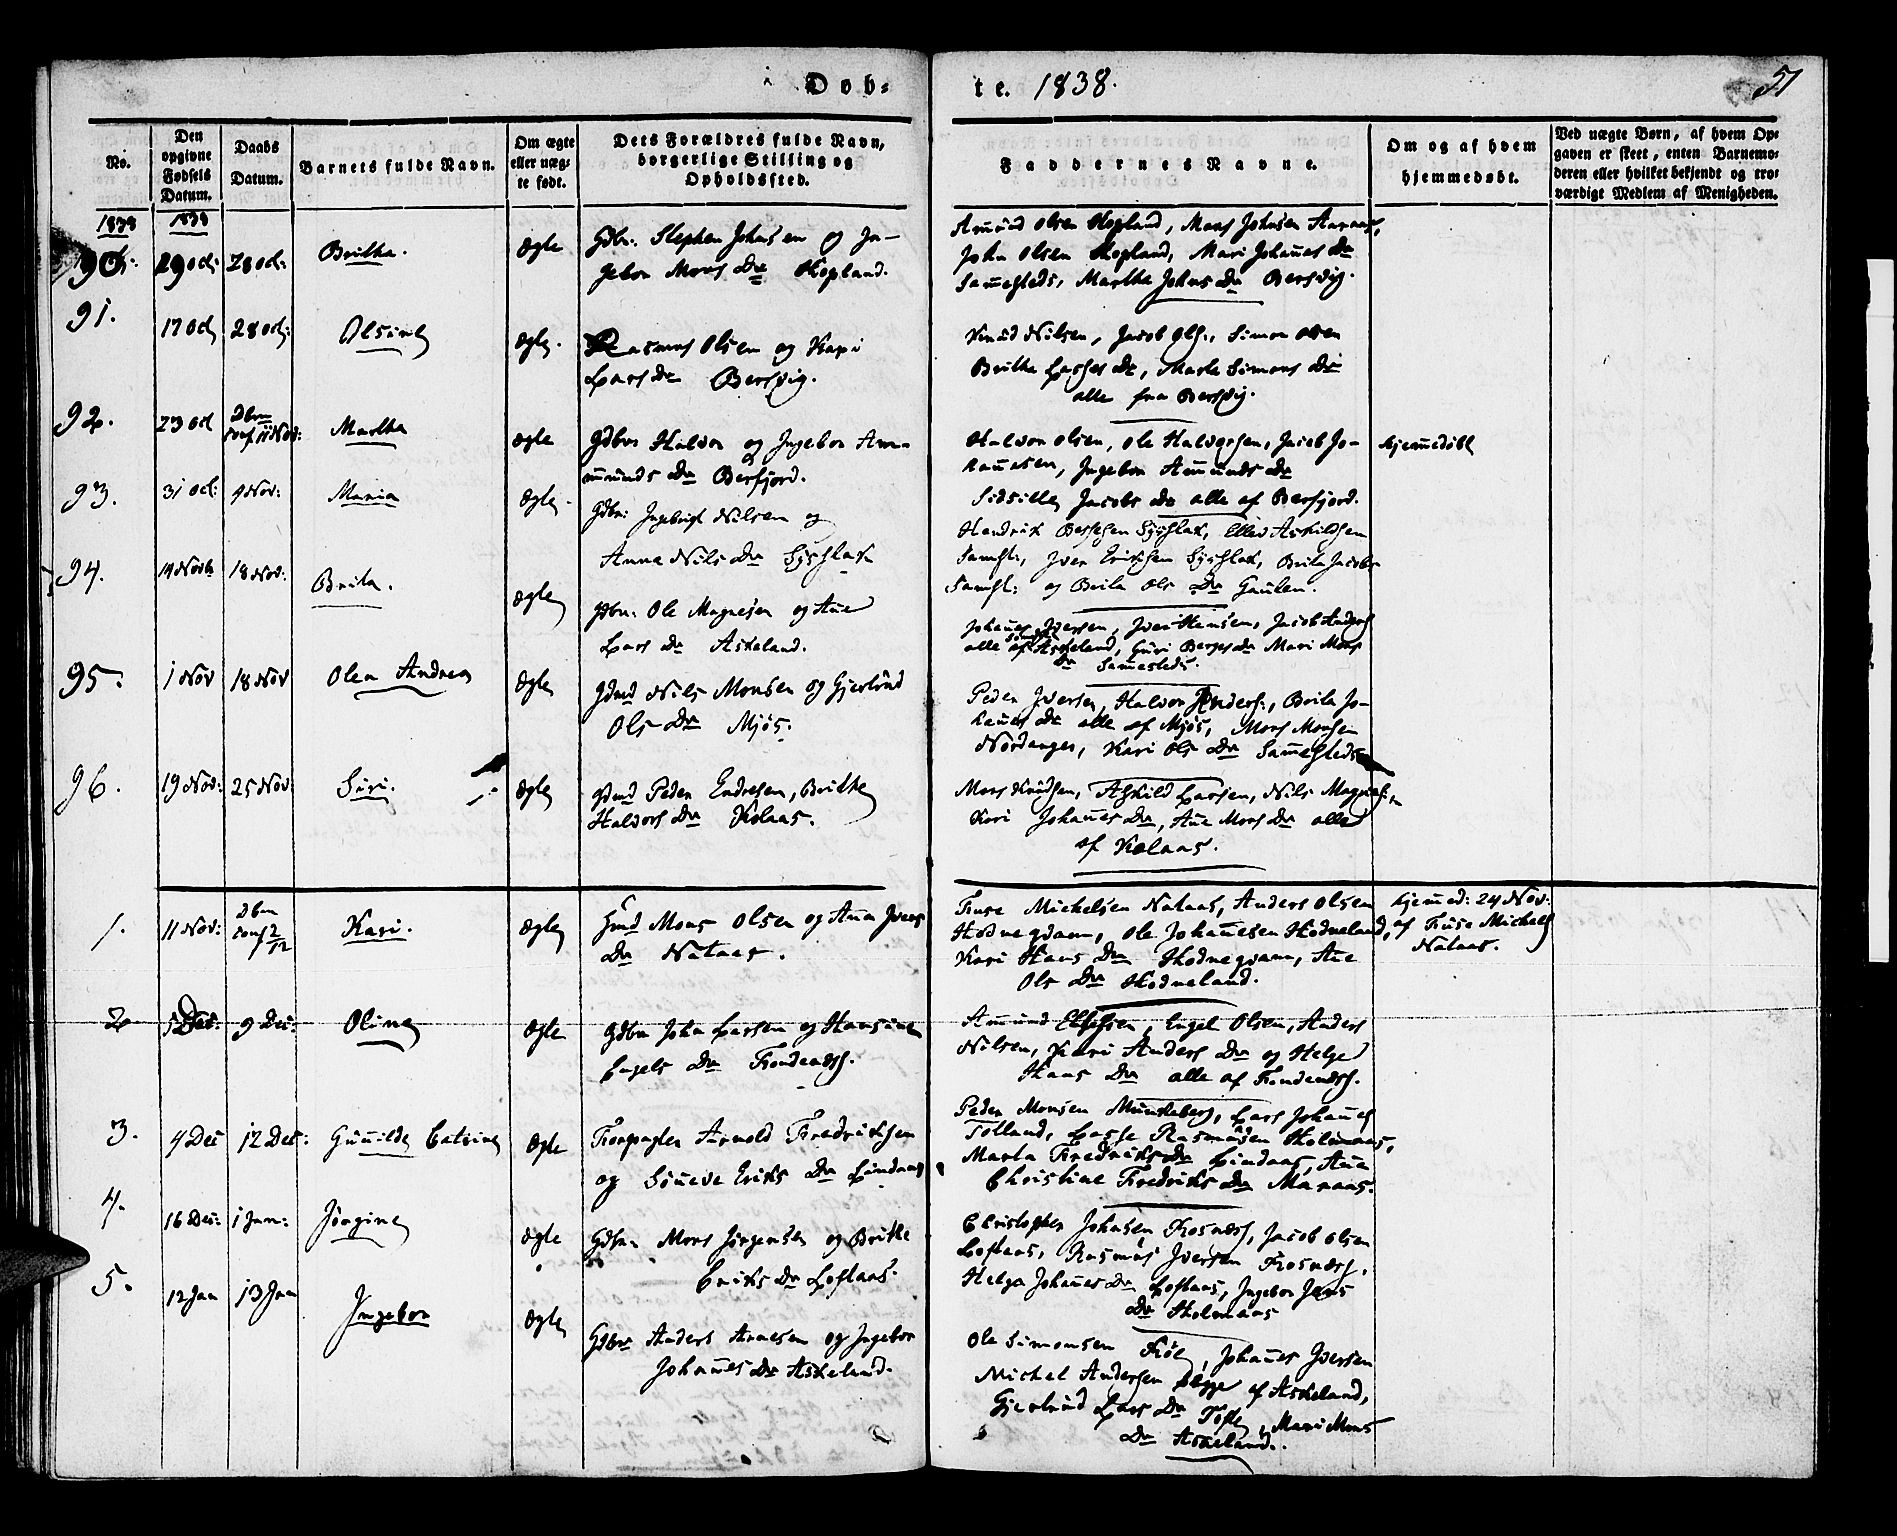 Døb-
te. 1838.
51
No.
Den opgivne Fødsels Datum.
Daabs Datum.
Barnets fulde Navn.
Om ægte eller uægte født.
Dets Forældres fulde Navn, borgerlige Stilling og Opholdssted.
Faddernes Navne.
Om og af hvem hjemmedøbt.
Ved uægte Børn, af hvem Opgaven er skeet, enten Barnemoderen eller hvilket bekjendt og troværdigt Medlem af Menigheden.
1838 1838
90. 29 oct: 28 oct: Britha. Ægte
Gdbr: Stephen Johnsen og In-
gebor Mons Dr Hopland.
Amund Olsen Hopland, Mons Johnsen Aaraas,
John Olsen Hopland, Mari Johanes Dr
Sammesteds, Martha Johns Dr Bersvig.
91. 17 Oct 28 oct: Olsine Ægte.
Rasmus Olsen og Kari
Lars Dr Bersvig.
Knud Nilsen, Jacob Ols:, Simon Olsen
Britha Lasses Dr, Marte Simons Dr
alle fra Bersvig.
92. 23 Oct Dbn conf 11 Nov: Martha Ægte
Gdbr Halvor og Ingebor Am-
munds Dr Berfjord.
Halvor Olsen, Ole Halvorsen, Jacob Jo-
hannesen, Ingebor Amunds Dr
Sidselle Jacobs Dr alle af Berfjord.
hjemmedøbt
93. 31 Oct: 4 Nov: Maria Ægte
Gdbr: Ingebrigt Nilsen og
Anna Nils Dr Sysslak
Hendrik Bessesen Sysslak, Ellev Askildsen
Samst:, Iver Erichsen Sysslak, Brita Jacobs
Samst: og Brita Ols Dr Gaulen.
94. 14 Novb 18 Nov: Brita. Ægte
Gdbr: Ole Magnesen og Ane
Lars Dr Askeland.
Johanes Iversen, Iver Hansen, Jacob Anders
alle af Askeland, Guri Berges Dr Mari Mons
Dr Samesteds.
95. 1 Nov 18 Nov Olea Andrea Ægte
Gdmd Nils Monsen og Gjertrud
Ols Dr Mjøs.
Peder Iversen, Halvor Anders:, Brita Jo-
hannes Dr alle af Mjøs, Mons Monsen
Nordanger, Kari Ols Dr Sammesteds
96. 19 Nov: 25 Nov: Siri. Ægte
Gdmd Peder Endresen, Brithe
Halvors Dr Kolaas.
Mons Knudsen, Askild Larsen, Nils Magnes:
Kari Johanes Dr, Ane Mons Dr alle
af Kolaas.
1. 11 Nov: Dbn conf 2/12 Kari. Ægte
Gmd Mons Olsen og Anna Ivers
Dr Nataas.
Truse Mickelsen Nataas, Anders Olsen
Hodnegdam, Ole Johannesen Hodneland,
Kari Hans Dr Hodnegdam, Ane
Ols Dr Hodneland.
hjemmed: 24 Nov:
af Truse Michels
Nataas.
2. 5 Dec: 9 Dec: Oline Ægte
Gdbr John Larsen og Hansine
Engels Dr
Amund Engel Olsen, Anders
Nilsen, Kari Anders Dr og Helge
Hans Dr alle af
3. 4 Dec 12 Dec: Gunilde Catrine Ægte
Arnold Fredriksen
og Sineve Eriks Dr Lindaas
Peder Monsen Munkeberg, Lars Johannes
Tolland, Lasse Rasmusen Holmaas,
Marta Fredriks Dr Lindaas, Ane
Christine Fredriks Dr Maraas.
4. 16 Dec: 1 Jan: Jørgine Ægte
Gdbr: Mons Jørgensen og Brithe
Eriks Dr Loftaas.
Christopher Johnsen Fosnæss, Jacob Olsen
Loftaas, Rasmus Iversen Fosnæss,
Helga Johanes Dr Loftaas, Ingebor Jans
Dr Holmaas
5. 12 Jan 13 Jan Ingebor Ægte
Gdbr Anders Arnesen og Ingebor
Johannes Dr Askeland.
Ole Simonsen , Johanes Iversen
Michel Andersen begge af Askeland,
Gjertrud Lars Dr Tofte, Mari Mons
Dr Askeland.